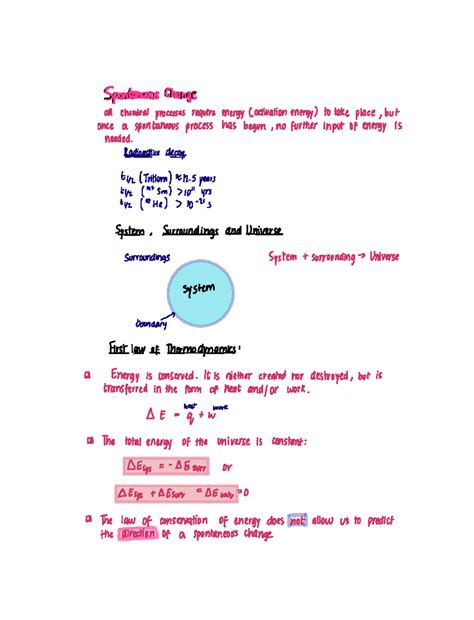 Spontaneous Change
all chemical processes require energy (activation energy) to take place, but
once a spontaneous process has begun, no further input of energy is
needed.
Radioactive decay
t1/2 (Tritium) ≈ 12.5 years
t1/2 ( Sm) > 10¹¹ yrs
t1/2 ( He) > 10⁻²¹ s
System, Surroundings and Universe
Surroundings
System + surrounding → Universe
System
boundary
First law of Thermodynamics:
Energy is conserved. It is niether created nor destroyed, but is
transferred in the form of heat and/or work.
heat work
ΔE = q + w
The total energy of the universe is constant:
ΔEsys = -ΔEsurr or
ΔEsys + ΔEsurr = ΔEuniv = 0
The law of conservation of energy does not allow us to predict
the direction of a spontaneous change.